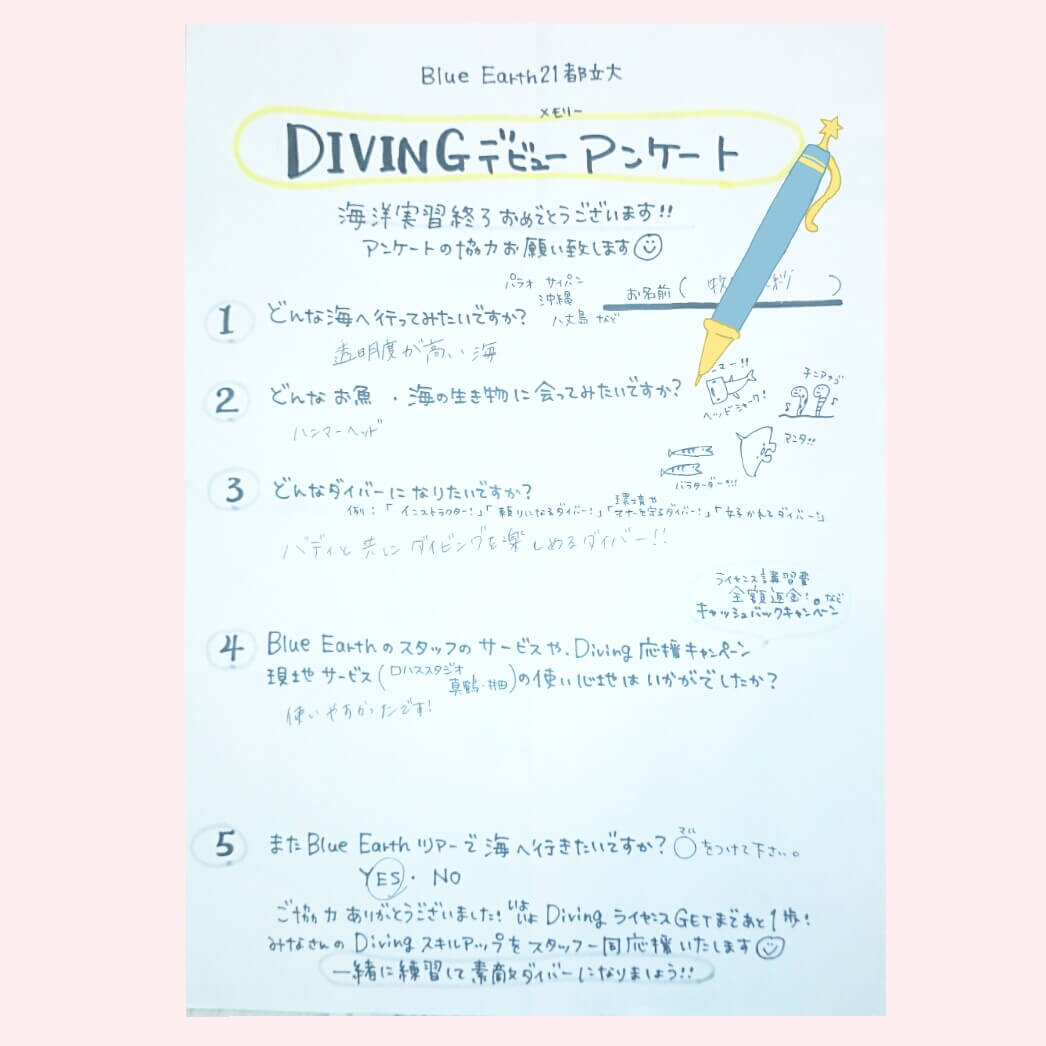 Blue Earth21都立大
メモリー
DIVINGデビューアンケート
海洋実習終了おめでとうございます!!
アンケートの協力お願い致します
お名前(
パラオ サイパン
沖縄
八丈島 など
1 どんな海へ行ってみたいですか?
透明度が高い海
2 どんなお魚・海の生き物に会ってみたいですか?
マー!!
ヘッドシャーク!
チンアナゴ
ハンマーヘッド
マンタ!!
バラクーダー!!!
3 どんなダイバーになりたいですか?
例:「インストラクター!」「頼りになるダイバー!」「環境やマナーを守るダイバー!」「女子かれるダイバー」
バディと共にダイビングを楽しめるダイバー!!
ライセンス講習費
全額返金!など
キャッシュバックキャンペーン
4 Blue Earthのスタッフのサービスや、Diving応援キャンペーン
現地サービス(ロハススタジオ
真鶴・井田)の使い心地はいかがでしたか?
使いやすかったです!
5 またBlue Earthツアーで海へ行きたいですか?○をつけて下さい。
マル
YES・NO
ご協力ありがとうございました!いよいよDivingライセンスGETまであと1歩!
みなさんのDivingスキルアップをスタッフ一同応援いたします
一緒に練習して素敵なダイバーになりましょう!!